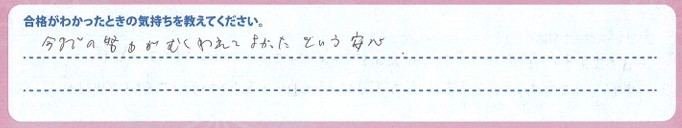 合格がわかったときの気持ちを教えてください。
今までの努力がむくわれてよかったという安心